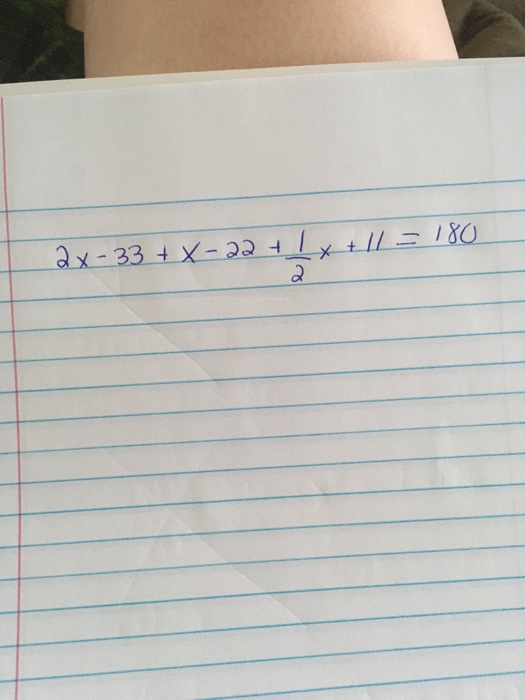 2x - 33 + x - 22 + 1/2 x + 11 = 180